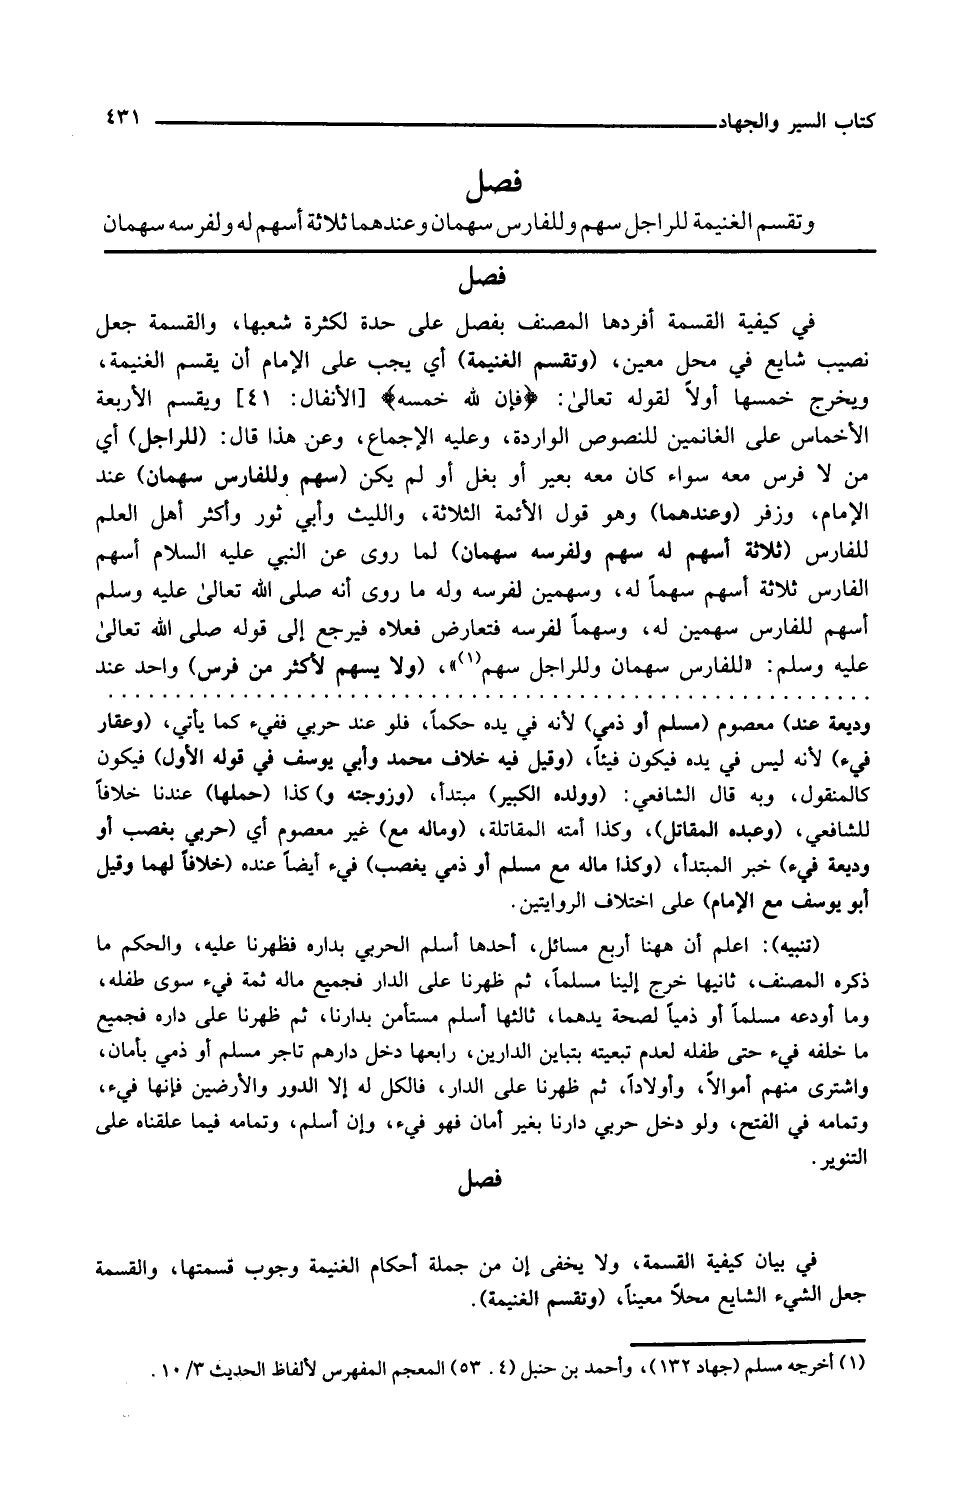 كتاب السير والجهاد ٤٣١
فصل
وتقسم الغنيمة للراجل سهم وللفارس سهمان وعندهما ثلاثة أسهم له ولفرسه سهمان
فصل
في كيفية القسمة أفردها المصنف بفصل على حدة لكثرة شعبها، والقسمة جعل
نصيب شايع في محل معين، (وتقسم الغنيمة) أي يجب على الإمام أن يقسم الغنيمة،
ويخرج خمسها أولاً لقوله تعالىٰ: ﴿فإن لله خمسه﴾ [الأنفال: ٤١] ويقسم الأربعة
الأخماس على الغانمين للنصوص الواردة، وعليه الإجماع، وعن هذا قال: (للراجل) أي
من لا فرس معه سواء كان معه بعير أو بغل أو لم يكن (سهم وللفارس سهمان) عند
الإمام، وزفر (وعندهما) وهو قول الأئمة الثلاثة، والليث وأبي ثور وأكثر أهل العلم
للفارس (ثلاثة أسهم له سهم ولفرسه سهمان) لما روى عن النبي عليه السلام أسهم
الفارس ثلاثة أسهم سهماً له، وسهمين لفرسه وله ما روى أنه صلى الله تعالىٰ عليه وسلم
أسهم للفارس سهمين له، وسهماً لفرسه فتعارض فعلاه فيرجع إلى قوله صلى الله تعالىٰ
عليه وسلم: «للفارس سهمان وللراجل سهم(١)»، (ولا يسهم لأكثر من فرس) واحد عند
وديعة عند) معصوم (مسلم أو ذمي) لأنه في يده حكماً، فلو عند حربي ففيء كما يأتي، (وعقار
فيء) لأنه ليس في يده فيكون فيئاً، (وقيل فيه خلاف محمد وأبي يوسف في قوله الأول) فيكون
كالمنقول، وبه قال الشافعي: (وولده الكبير) مبتدأ، (وزوجته و) كذا (حملها) عندنا خلافاً
للشافعي، (وعبده المقاتل)، وكذا أمته المقاتلة، (وماله مع) غير معصوم أي (حربي بغصب أو
وديعة فيء) خبر المبتدأ، (وكذا ماله مع مسلم أو ذمي يغصب) فيء أيضاً عنده (خلافاً لهما وقيل
أبو يوسف مع الإمام) على اختلاف الروايتين.
(تنبيه): اعلم أن ههنا أربع مسائل، أحدها أسلم الحربي بداره فظهرنا عليه، والحكم ما
ذكره المصنف، ثانيها خرج إلينا مسلماً، ثم ظهرنا على الدار فجميع ماله ثمة فيء سوى طفله،
وما أودعه مسلماً أو ذمياً لصحة يدهما، ثالثها أسلم مستأمن بدارنا، ثم ظهرنا على داره فجميع
ما خلفه فيء حتى طفله لعدم تبعيته بتباين الدارين، رابعها دخل دارهم تاجر مسلم أو ذمي بأمان،
واشترى منهم أموالاً، وأولاداً، ثم ظهرنا على الدار، فالكل له إلا الدور والأرضين فإنها فيء،
وتمامه في الفتح، ولو دخل حربي دارنا بغير أمان فهو فيء، وإن أسلم، وتمامه فيما علقناه على
التنوير.
فصل
في بيان كيفية القسمة، ولا يخفى إن من جملة أحكام الغنيمة وجوب قسمتها، والقسمة
جعل الشيء الشايع محلاً معيناً، (وتقسم الغنيمة).
(١) أخرجه مسلم (جهاد ١٣٢)، وأحمد بن حنبل (٤. ٥٣) المعجم المفهرس لألفاظ الحديث ٣/ ١٠.